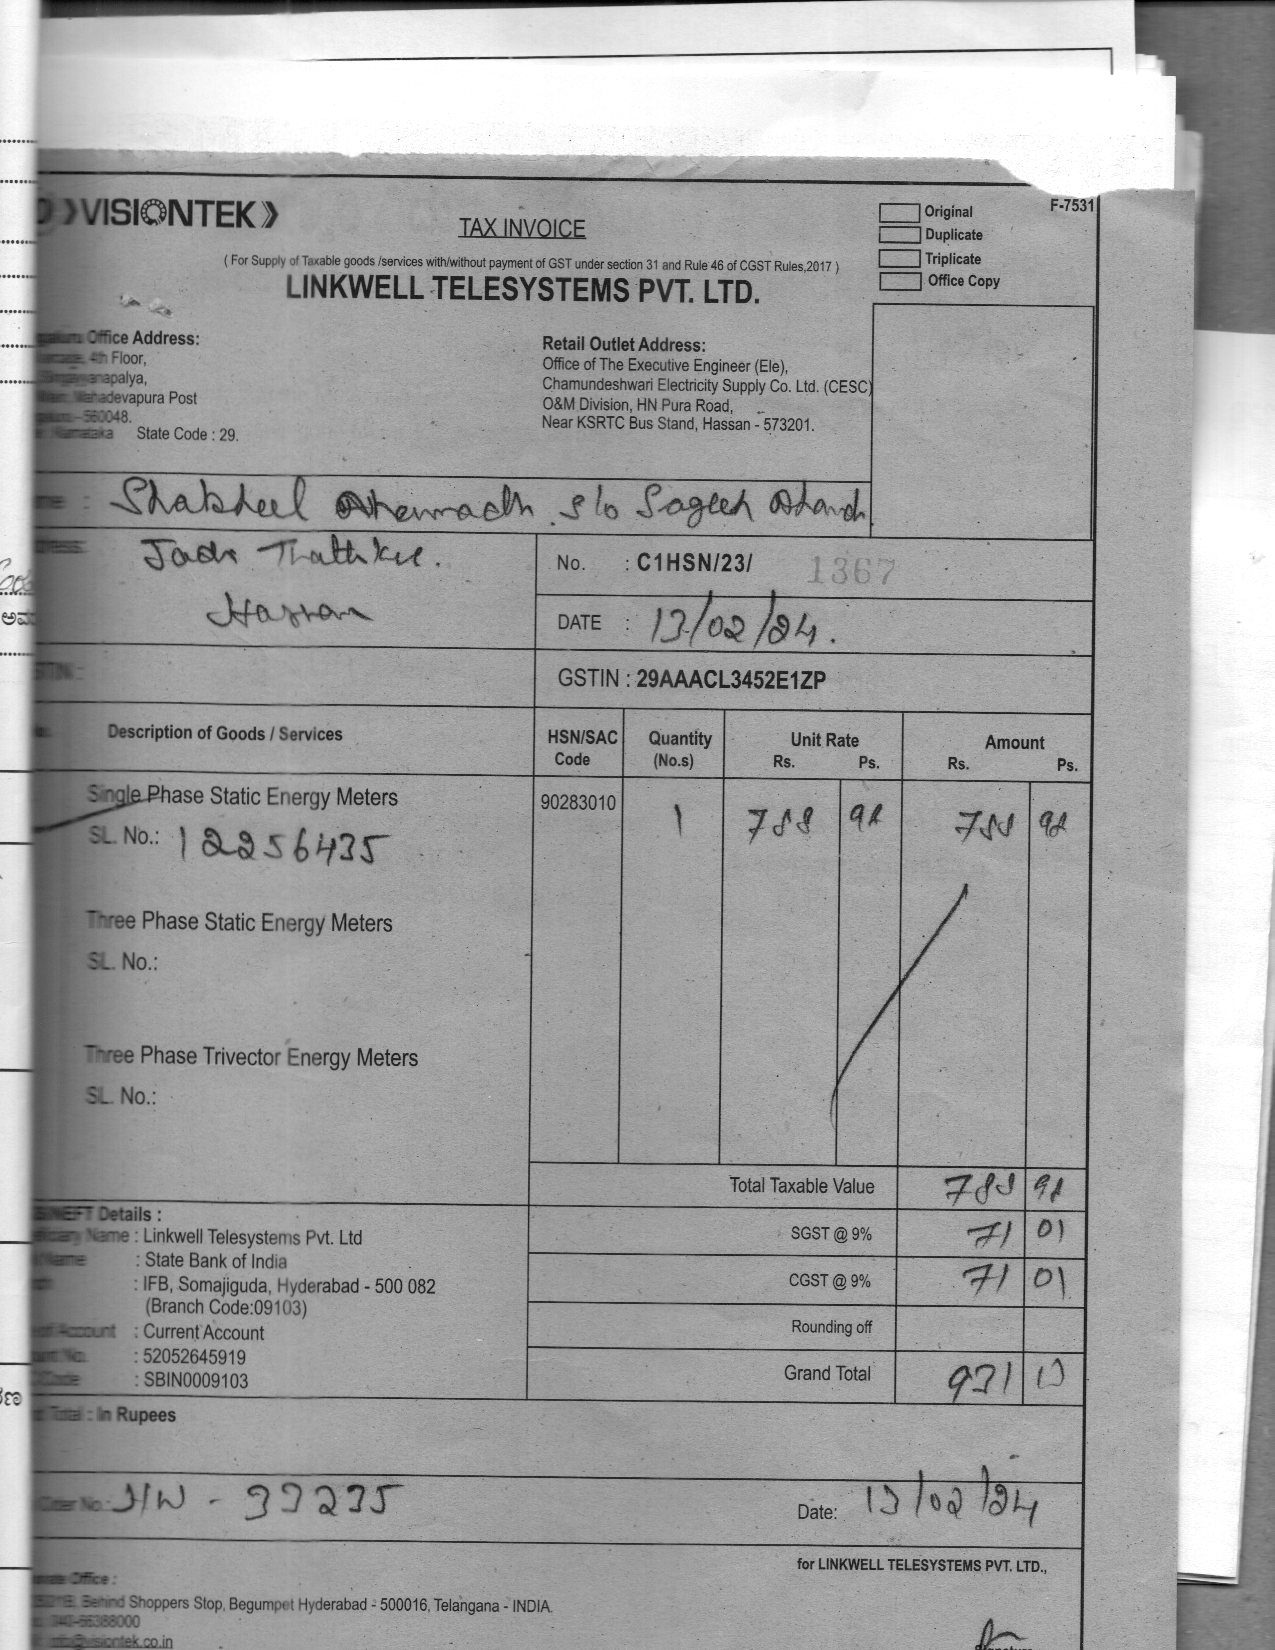 VISIONTEK
TAX INVOICE
Original
F-7531
Duplicate
Triplicate
Office Copy
( For Supply of Taxable goods /services with/without payment of GST under section 31 and Rule 46 of CGST Rules,2017 )
LINKWELL TELESYSTEMS PVT. LTD.
Office Address:
4th Floor,
Mahadevapura Post
560048.
Karnataka State Code : 29.
Retail Outlet Address:
Office of The Executive Engineer (Ele),
Chamundeshwari Electricity Supply Co. Ltd. (CESC)
O&M Division, HN Pura Road,
Near KSRTC Bus Stand, Hassan - 573201.
Shakheel s/o
Hassan
No. : C1HSN/23/ 1367
DATE : 13/02/24.
GSTIN : 29AAACL3452E1ZP
Description of Goods / Services
HSN/SAC Code
Quantity (No.s)
Unit Rate Rs. Ps.
Amount Rs. Ps.
Single Phase Static Energy Meters 90283010 1 788 98 788 98
SL. No.: 12256435
Three Phase Static Energy Meters
SL. No.:
Three Phase Trivector Energy Meters
SL. No.:
Total Taxable Value 788 98
SGST @ 9% 71 01
CGST @ 9% 71 01
Rounding off
Grand Total 931
NEFT Details :
Name : Linkwell Telesystems Pvt. Ltd
Name : State Bank of India
: IFB, Somajiguda, Hyderabad - 500 082
(Branch Code:09103)
of Account : Current Account
No. : 52052645919
Code : SBIN0009103
Total : In Rupees
No.: - 33235
Date: 13/02/24
for LINKWELL TELESYSTEMS PVT. LTD.,
Office :
Behind Shoppers Stop, Begumpet Hyderabad - 500016, Telangana - INDIA.
040-66388000
visiontek.co.in